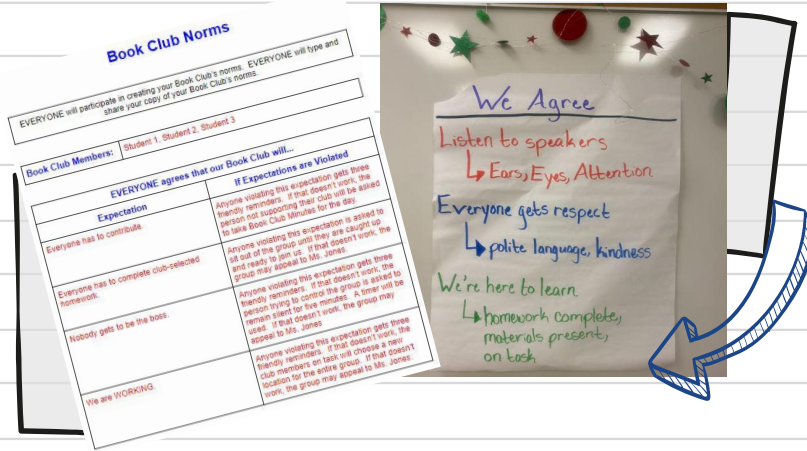 Book Club Norms
EVERYONE will participate in creating your Book Club's norms. EVERYONE will type and
share your copy of your Book Club's norms.
Book Club Members: Student 1, Student 2, Student 3
EVERYONE agrees that our Book Club will...
Expectation
If Expectations are Violated
Everyone has to contribute.
Anyone violating this expectation gets three
friendly reminders. If that doesn't work, the
person not supporting their club will be asked
to take Book Club Minutes for the day.
Everyone has to complete club-selected
homework.
Anyone violating this expectation is asked to
sit out of the group until they are caught up
and ready to join us. If that doesn't work, the
group may appeal to Ms. Jones.
Nobody gets to be the boss.
Anyone violating this expectation gets three
friendly reminders. If that doesn't work, the
person trying to control the group is asked to
remain silent for five minutes. A timer will be
used. If that doesn't work, the group may
appeal to Ms. Jones
We are WORKING.
Anyone violating this expectation gets three
friendly reminders. If that doesn't work, the
club members on task will choose a new
location for the entire group. If that doesn't
work, the group may appeal to Ms. Jones.
We Agree
Listen to speakers
Ears, Eyes, Attention
Everyone gets respect
polite language, kindness
We're here to learn
homework complete,
materials present,
on task